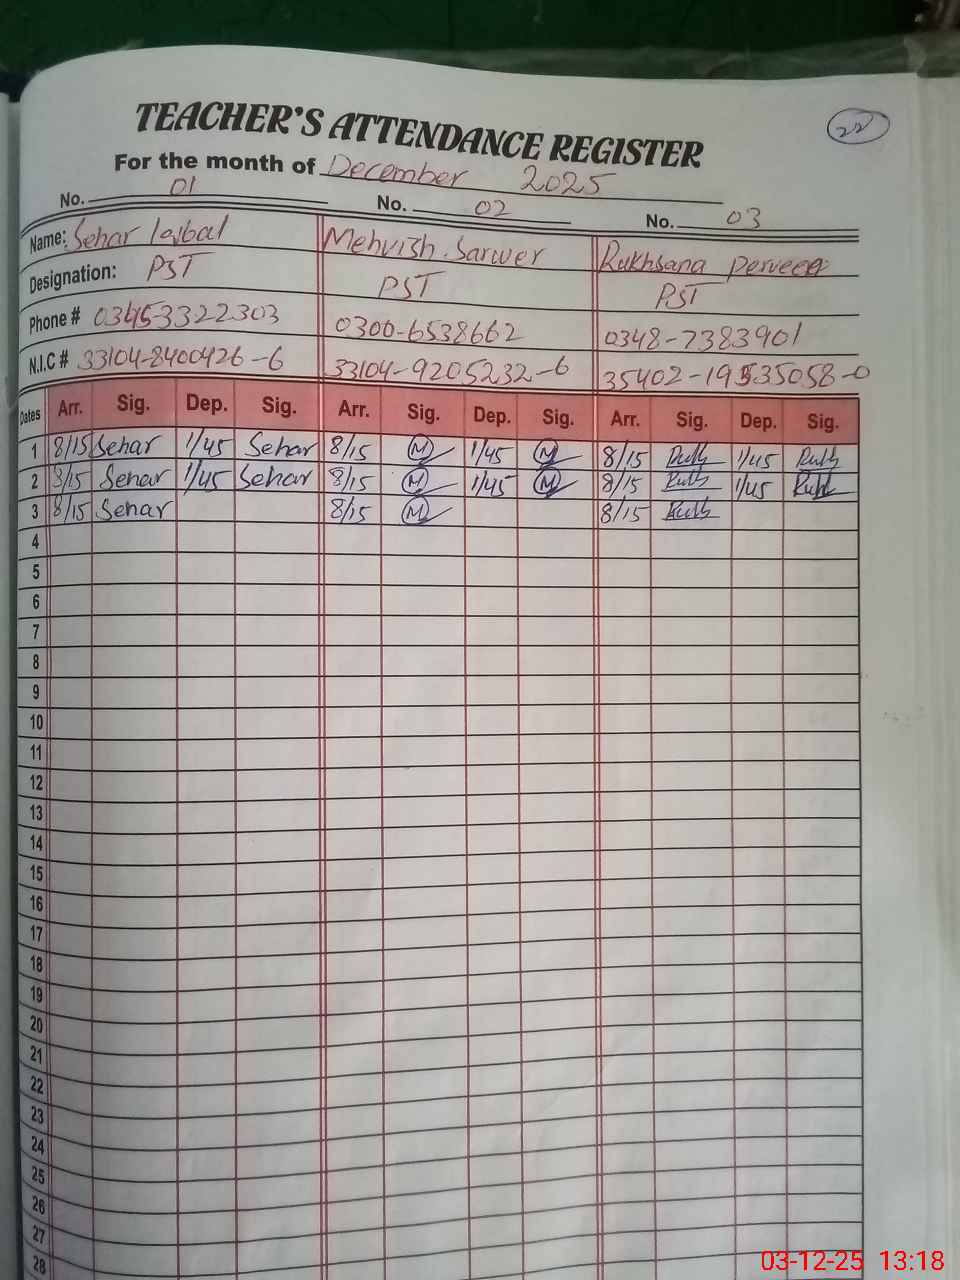 22
TEACHER'S ATTENDANCE REGISTER
For the month of December 2025
No. 01 No. 02 No. 03
Name: Sehar Iqbal Mehvish Sarwer Rukhsana Perveen
Designation: PST PST PST
Phone # 03453322303 0300-6538662 0348-7383901
N.I.C # 33104-8400426-6 33104-9205232-6 35402-1935058-0
Dates Arr. Sig. Dep. Sig. Arr. Sig. Dep. Sig. Arr. Sig. Dep. Sig.
1 8/15 Sehar 1/45 Sehar 8/15 M 1/45 M 8/15 Rukh 1/45 Rukh
2 8/15 Sehar 1/45 Sehar 8/15 M 1/45 M 8/15 Rukh 1/45 Rukh
3 8/15 Sehar 8/15 M 8/15 Rukh
4
5
6
7
8
9
10
11
12
13
14
15
16
17
18
19
20
21
22
23
24
25
26
27
28
03-12-25 13:18